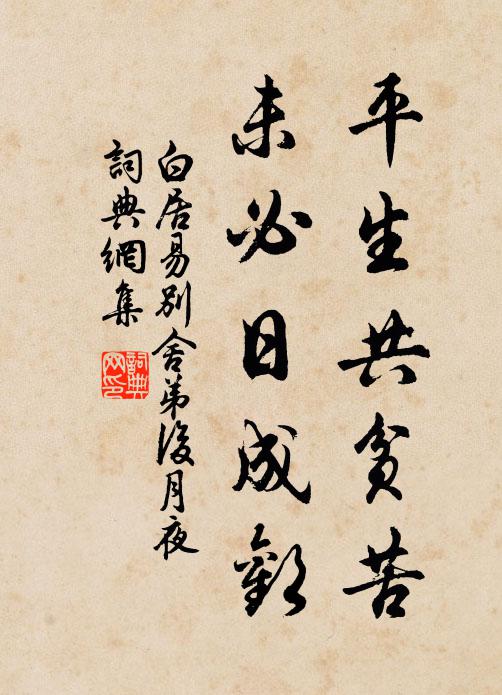 平生共貧苦
未必日成歡
白居易別舍弟後月夜
詞典網集
詞典網印